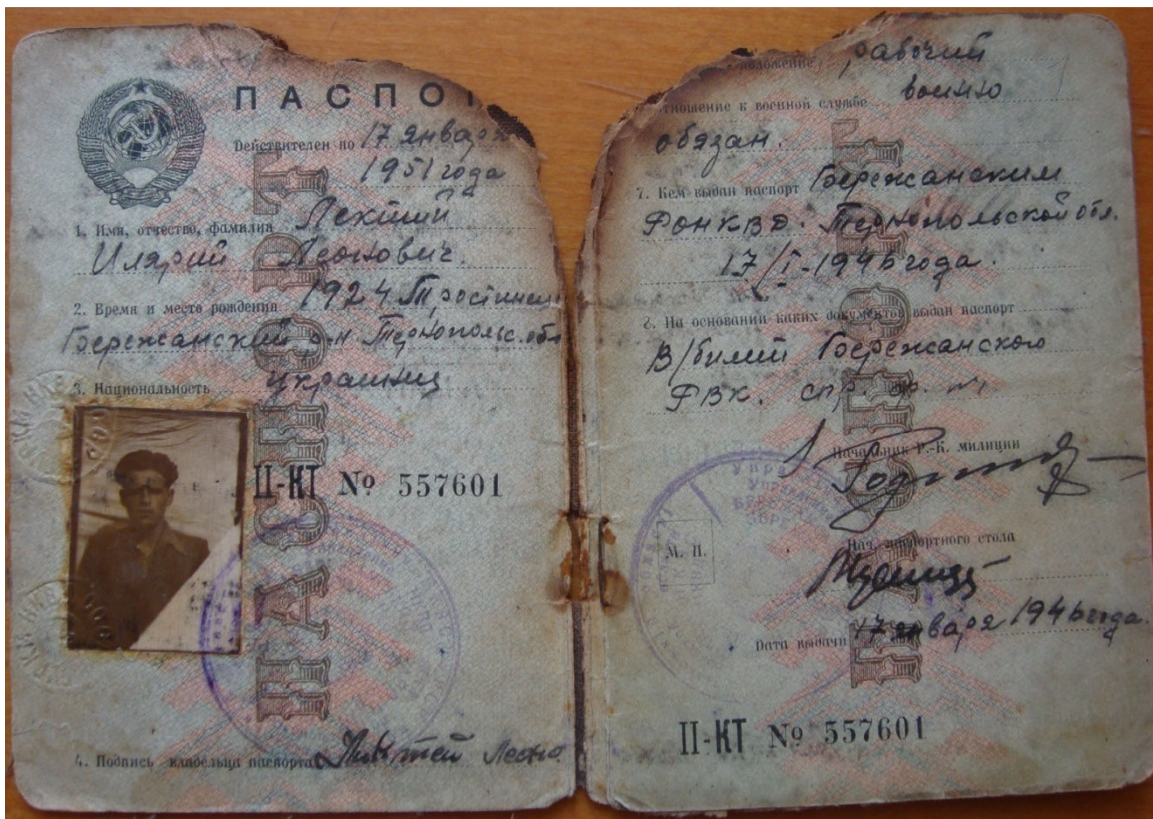 ПАСПО
Действителен по 17 января
1951 года
1. Имя, отчество, фамилия
Илярий Леонович.
2. Время и место рождения 1924. Тростинец
Бережанский р-н. Тернопольс. обл
3. Национальность украинец
II-КТ № 557601
4. Подпись владельца паспорта
положение рабочий
отношение к военной службе военно
обязан.
7. Кем выдан паспорт Бережанским
РОНКВД. Тернопольской обл.
17/I-1946 года.
8. На основании каких документов выдан паспорт
В/билет Бережанского
РВК. спр.
Начальник Р.-К. милиции
М. П.
Нач. паспортного стола
Дата выдачи 17 января 1946 года.
II-КТ № 557601
ПАСПОРТ
ПАСПОРТ